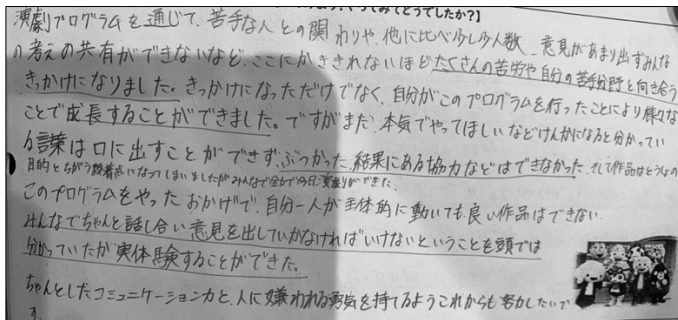 やってみてどうでしたか?】
演劇プログラムを通じて、苦手な人との関わりや、他に比べ少し少人数、意見があまり出ずみんな
の考えの共有ができないなど、ここにかききれないほどたくさんの苦労や自分の苦手分野と向き合う
きっかけになりました。きっかけになっただけでなく、自分がこのプログラムを行ったことにより様々な
ことで成長することができました。ですがまだ、本気でやってほしいなどけんかになると分かってい
る言葉は口に出すことができず、ぶつかった結果にある協力などはできなかった。そして作品はとうしょの
目的とちがう終着点になってしまいましたがみんなで全力で今日に
このプログラムをやったおかげで、自分一人が主体的に動いても良い作品はできない
みんなでちゃんと話し合い意見を出していかなければいけないということを頭では
分かっていたが実体験することができた。
ちゃんとしたコミュニケーション力と、人に嫌われる勇気を持てるようこれからも努力したいで
す